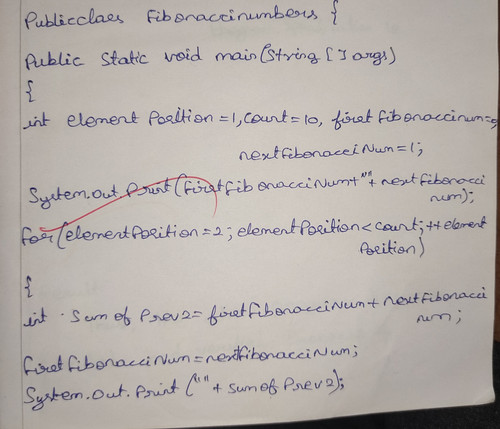 Publicclass Fibonaccinumbers {
Public Static void main(String [ ] args)
{
int element Position = 1, Count = 10, firstfibonaccinum=0,
nextfibonacciNum = 1;
System.out.Print(firstfibonacciNum+""+nextfibonacci
num);
for(elementPosition = 2; elementPosition < count; ++element
Position)
{
int Sum of Prev2 = firstfibonacciNum + nextfibonacci
num;
firstfibonacciNum = nextfibonacciNum;
System.out.Print (""+ sumofPrev2);